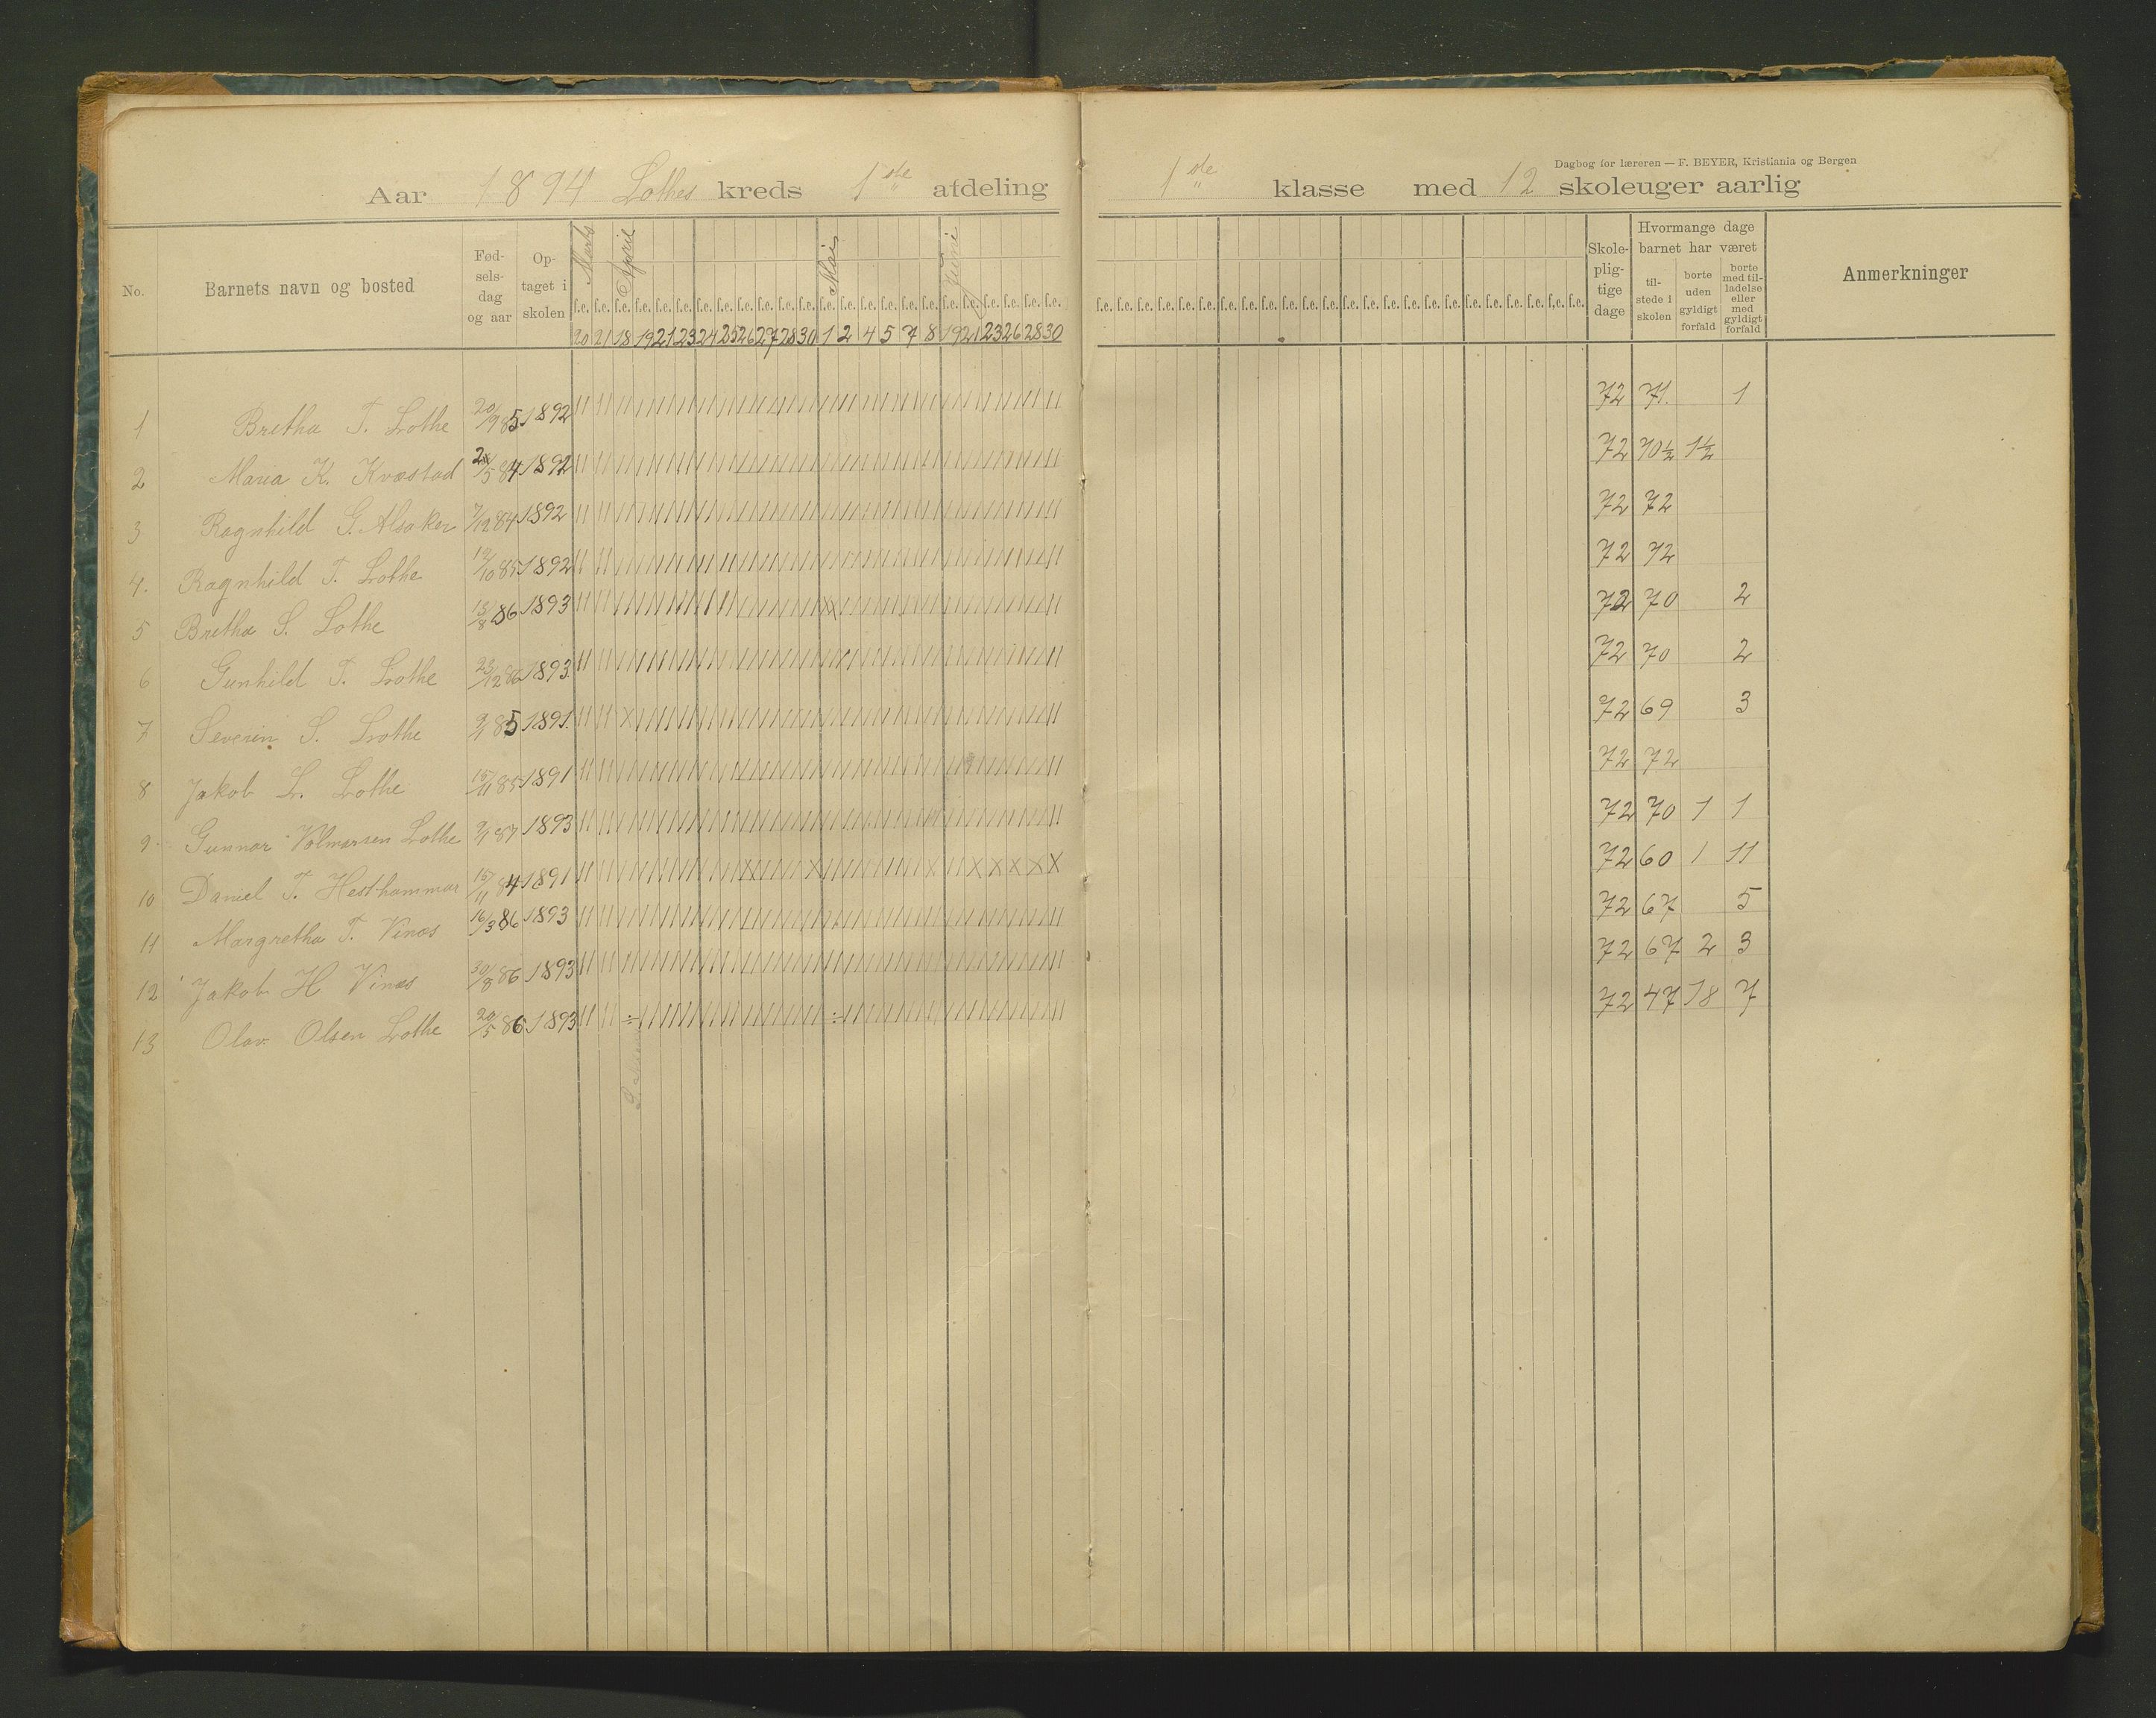 Dagbog for læreren — F. BEYER, Kristiania og Bergen
Aar 1894 Lothes kreds 1ste afdeling 1ste klasse med 12 skoleuger aarlig
No. Barnets navn og bosted Fødselsdag og aar Optaget i skolen Marts April Mai Juni Skolepligtige dage Hvormange dage barnet har været Anmerkninger
tilstede i skolen borte uden gyldigt forfald borte med tilladelse eller med gyldigt forfald
f.e. f.e. f.e. f.e. f.e. f.e. f.e. f.e. f.e. f.e. f.e. f.e. f.e. f.e. f.e. f.e. f.e. f.e. f.e. f.e. f.e. f.e. f.e. f.e. f.e. f.e. f.e. f.e. f.e. f.e. f.e. f.e. f.e. f.e. f.e. f.e. f.e. f.e. f.e. f.e. f.e. f.e. f.e. f.e. f.e. f.e. f.e. f.e.
20 21 18 19 21 23 24 25 26 27 28 30 1 2 4 5 7 8 19 21 23 26 28 30
1 Bretha T. Lothe 20/9 85 1892 72 71. 1
2 Maria K. Kvæstad /5 84 1892 72 70½ 1½
3 Ragnhild G. Alsaker 7/12 84 1892 72 72
4. Ragnhild T. Lothe 12/10 85 1892 72 72
5 Bretha S. Lothe 15/8 86 1893 72 70 2
6 Gunhild T. Lothe 23/12 86 1893. 72 70 2
7 Severin S. Lothe 85 1891. 72 69 3
8 Jakob L. Lothe 15/11 85 1891 72 72
9. Gunnar Volmarsen Lothe 87 1893 72 70 1 1
10 Daniel T. Hesthammar 15/11 84 1891 72 60 1 11
11 Margretha T. Vinæs 16/3 86 1893 72 67 5
12 Jakob H Vinæs 30/8 86 1893 72 67 2 3
13 Olav Olsen Lothe 20/5 86 1893 72 47 18 7